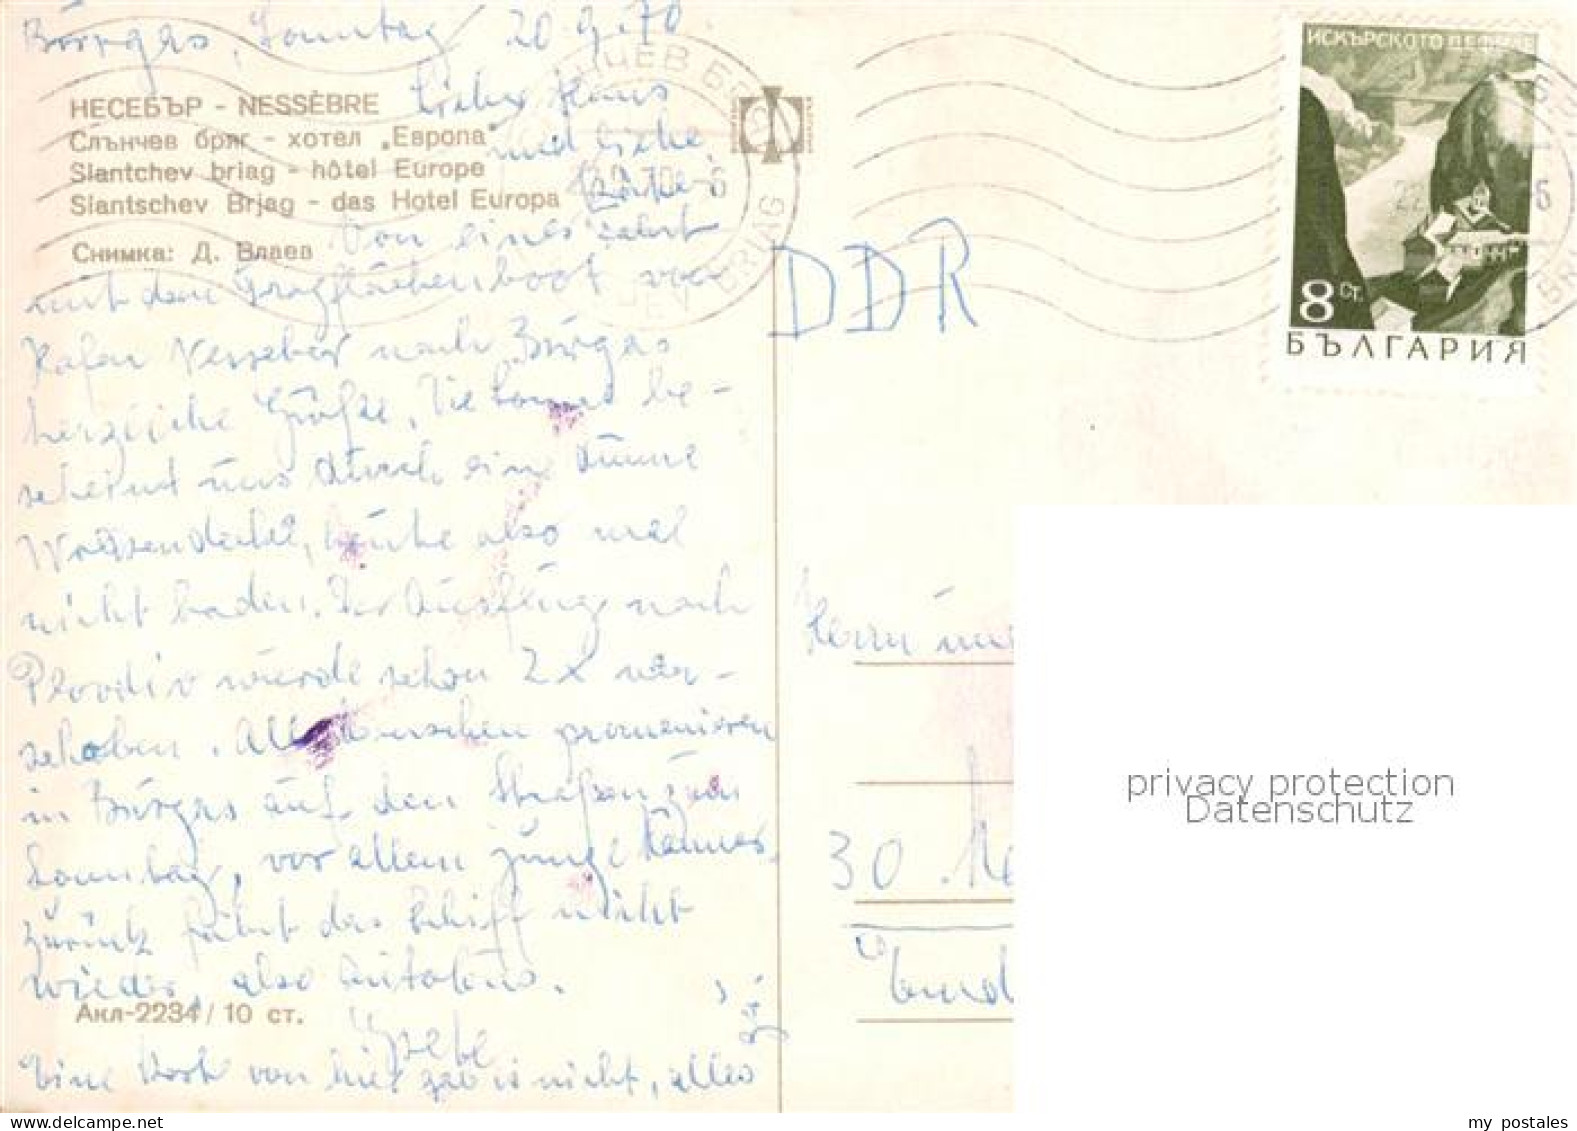 Búrgas, Sonntag 20.9.70
НЕСЕБЪР - NESSÈBRE
Слънчев бряг - хотел „Европа"
Slantchev briag - hôtel Europe
Slantschev Brjag - das Hotel Europa
Снимка: Д. Влаев
Liebe Klaus
und liebe
Von einer Fahrt
mit dem Tragflächenboot vom
Hafen Nessebar nach Búrgas
herzliche Grüße. Die Sonne be-
scheint uns durch eine dünne
Wolkendecke, heute also mal
nicht baden. Der Ausflug nach
Plovdiv wurde schon 2x ver-
schoben. Alle Menschen promenieren
in Búrgas auf den Straßen zum
Sonntag, vor allem junge Männer.
Zurück fährt das Schiff nicht
wieder, also Autobus.
Акл-2234 / 10 ст.
Eine Karte von hier gab es nicht, alles
DDR
ИСКЪРСКОТО ДЕФИЛЕ
8 СТ.
БЪЛГАРИЯ
BRIAG
Herrn und
30 Me
privacy protection
Datenschutz
my postales